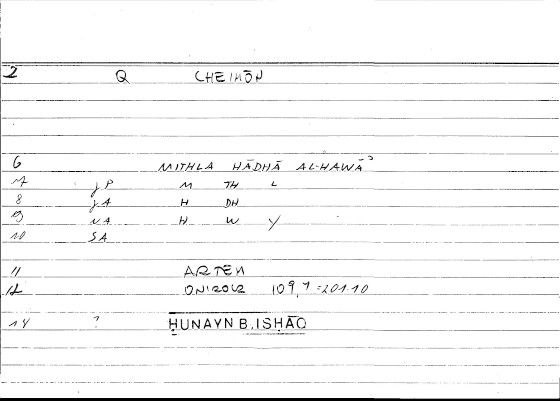 2 Q CHEIMŌN
6 MITHLA HĀDHĀ AL-HAWĀʾ
7 jP M TH L
8 jA H DH
9 vA H W Y
10 SA
11 ARTĒN
12 109,7 = 201.10
14 ? ḤUNAYN B. ISḤĀQ